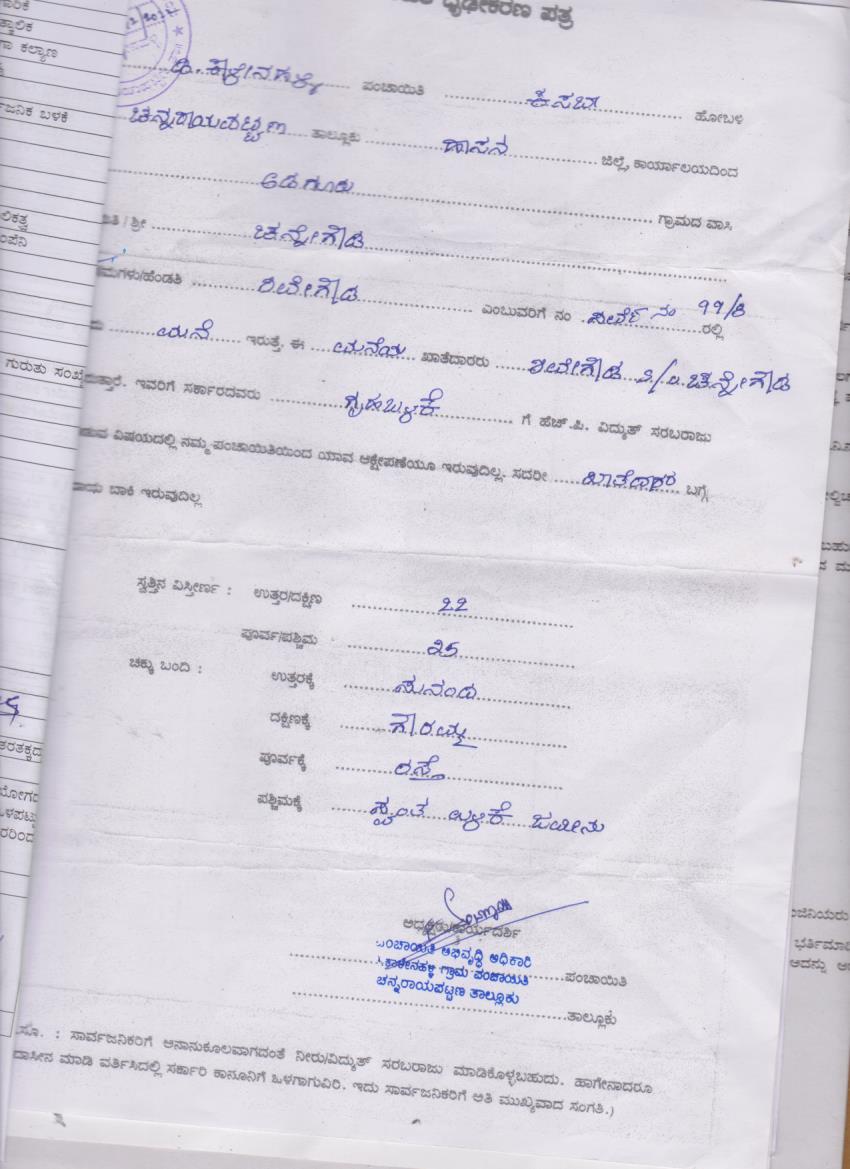 ದೃಢೀಕರಣ ಪತ್ರ
ಡಿ. ಕಾಳೇನಹಳ್ಳಿ ಪಂಚಾಯಿತಿ ಕಸಬಾ ಹೋಬಳಿ
ಚನ್ನರಾಯಪಟ್ಟಣ ತಾಲ್ಲೂಕು ಹಾಸನ ಜಿಲ್ಲೆ, ಕಾರ್ಯಾಲಯದಿಂದ
ಅಡಗೂರು ಗ್ರಾಮದ ವಾಸಿ
ಚನ್ನೇಗೌಡ
ಮಗಳು/ಹೆಂಡತಿ ಎಂಬುವರಿಗೆ ನಂ ಸರ್ವೆ ನಂ 11/3 ರಲ್ಲಿ
ಮನೆ ಇರುತ್ತೆ. ಈ ಮನೆಯ ಖಾತೆದಾರರು ಚನ್ನೇಗೌಡ
ಇವರಿಗೆ ಸರ್ಕಾರದವರು ಗೃಹಬಳಕೆ ಗೆ ಹೆಚ್.ಪಿ. ವಿದ್ಯುತ್ ಸರಬರಾಜು
ವಿಷಯದಲ್ಲಿ ನಮ್ಮ ಪಂಚಾಯಿತಿಯಿಂದ ಯಾವ ಆಕ್ಷೇಪಣೆಯೂ ಇರುವುದಿಲ್ಲ. ಸದರೀ ಖಾತೆದಾರರ ಬಗ್ಗೆ
ಬಾಕಿ ಇರುವುದಿಲ್ಲ
ಸ್ವತ್ತಿನ ವಿಸ್ತೀರ್ಣ : ಉತ್ತರ/ದಕ್ಷಿಣ 22
ಪೂರ್ವ/ಪಶ್ಚಿಮ 25
ಚಕ್ಕು ಬಂದಿ : ಉತ್ತರಕ್ಕೆ ಸುನಂದ
ದಕ್ಷಿಣಕ್ಕೆ ಗೌರಮ್ಮ
ಪೂರ್ವಕ್ಕೆ ರಸ್ತೆ
ಪಶ್ಚಿಮಕ್ಕೆ ಸ್ವಂತ ಬಳಕೆ ಜಮೀನು
ಅಧ್ಯಕ್ಷರು/ಕಾರ್ಯದರ್ಶಿ
ಪಂಚಾಯಿತಿ ಅಭಿವೃದ್ಧಿ ಅಧಿಕಾರಿ
ಕಾಳೇನಹಳ್ಳಿ ಗ್ರಾಮ ಪಂಚಾಯಿತಿ ಪಂಚಾಯಿತಿ
ಚನ್ನರಾಯಪಟ್ಟಣ ತಾಲ್ಲೂಕು
ತಾಲ್ಲೂಕು
ಸಾರ್ವಜನಿಕರಿಗೆ ಅನಾನುಕೂಲವಾಗದಂತೆ ನೀರು/ವಿದ್ಯುತ್ ಸರಬರಾಜು ಮಾಡಿಕೊಳ್ಳಬಹುದು. ಹಾಗೇನಾದರೂ
ಮಾಡಿ ವರ್ತಿಸಿದಲ್ಲಿ ಸರ್ಕಾರಿ ಕಾನೂನಿಗೆ ಒಳಗಾಗುವಿರಿ. ಇದು ಸಾರ್ವಜನಿಕರಿಗೆ ಅತಿ ಮುಖ್ಯವಾದ ಸಂಗತಿ.)